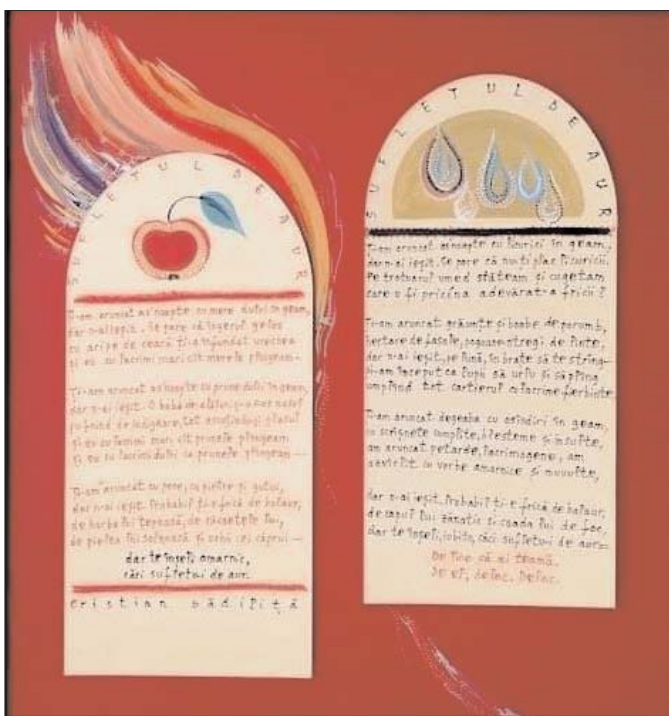 SUFLETUL DE AUR
Ți-am aruncat as'noapte cu mere dulci în geam,
dar n-ai ieșit. Se pare că îngerul gelos
cu aripe de ceară ți-a înfundat urechea
și eu cu lacrimi mari cît merele plîngeam—
Ți-am aruncat as'noapte cu prune dulci în geam,
dar n-ai ieșit. O babă de alături și-a scos nasul
tot
și eu cu lacrimi mari cît prunele plîngeam
și eu cu lacrimi dulci ca prunele plîngeam—
Ți-am aruncat cu pere, cu pietre și gutui,
dar n-ai ieșit. Probabil ți-e frică de balaur,
de barba lui țepoasă, de răcnetele lui,
de pielea lui solzoasă și ochii cei căprui—
dar te înșeli amarnic,
căci sufletu-i de aur.
cristian bădiliță
SUFLETUL DE AUR
Ți-am aruncat as'noapte cu licurici în geam,
dar n-ai ieșit. Se pare că nu-ți plac licuricii.
Pe trotuarul umed stăteam și cugetam
care o fi pricina adevărat-a fricii?
Ți-am aruncat grăunțe și boabe de porumb,
hectare de fasole, pogoane-ntregi de linte,
dar n-ai ieșit, pe lună, în brațe să te strîng
și-am început ca lupii să urlu și să plîng
umplînd tot cartierul cu lacrime fierbinte
Ți-am aruncat degeaba cu osîndiri în geam,
cu scrîșnete cumplite, blesteme și insulte,
am aruncat petarde, lacrimogene, am
azvîrlit cu vorbe amarnice și muuulte,
dar n-ai ieșit. Probabil ți-e frică de balaur,
de capul lui zănatic și coada lui de foc,
dar te înșeli, iubito, căci sufletu-i de aur—
De tine că ai teamă.
De el, deloc. Deloc.